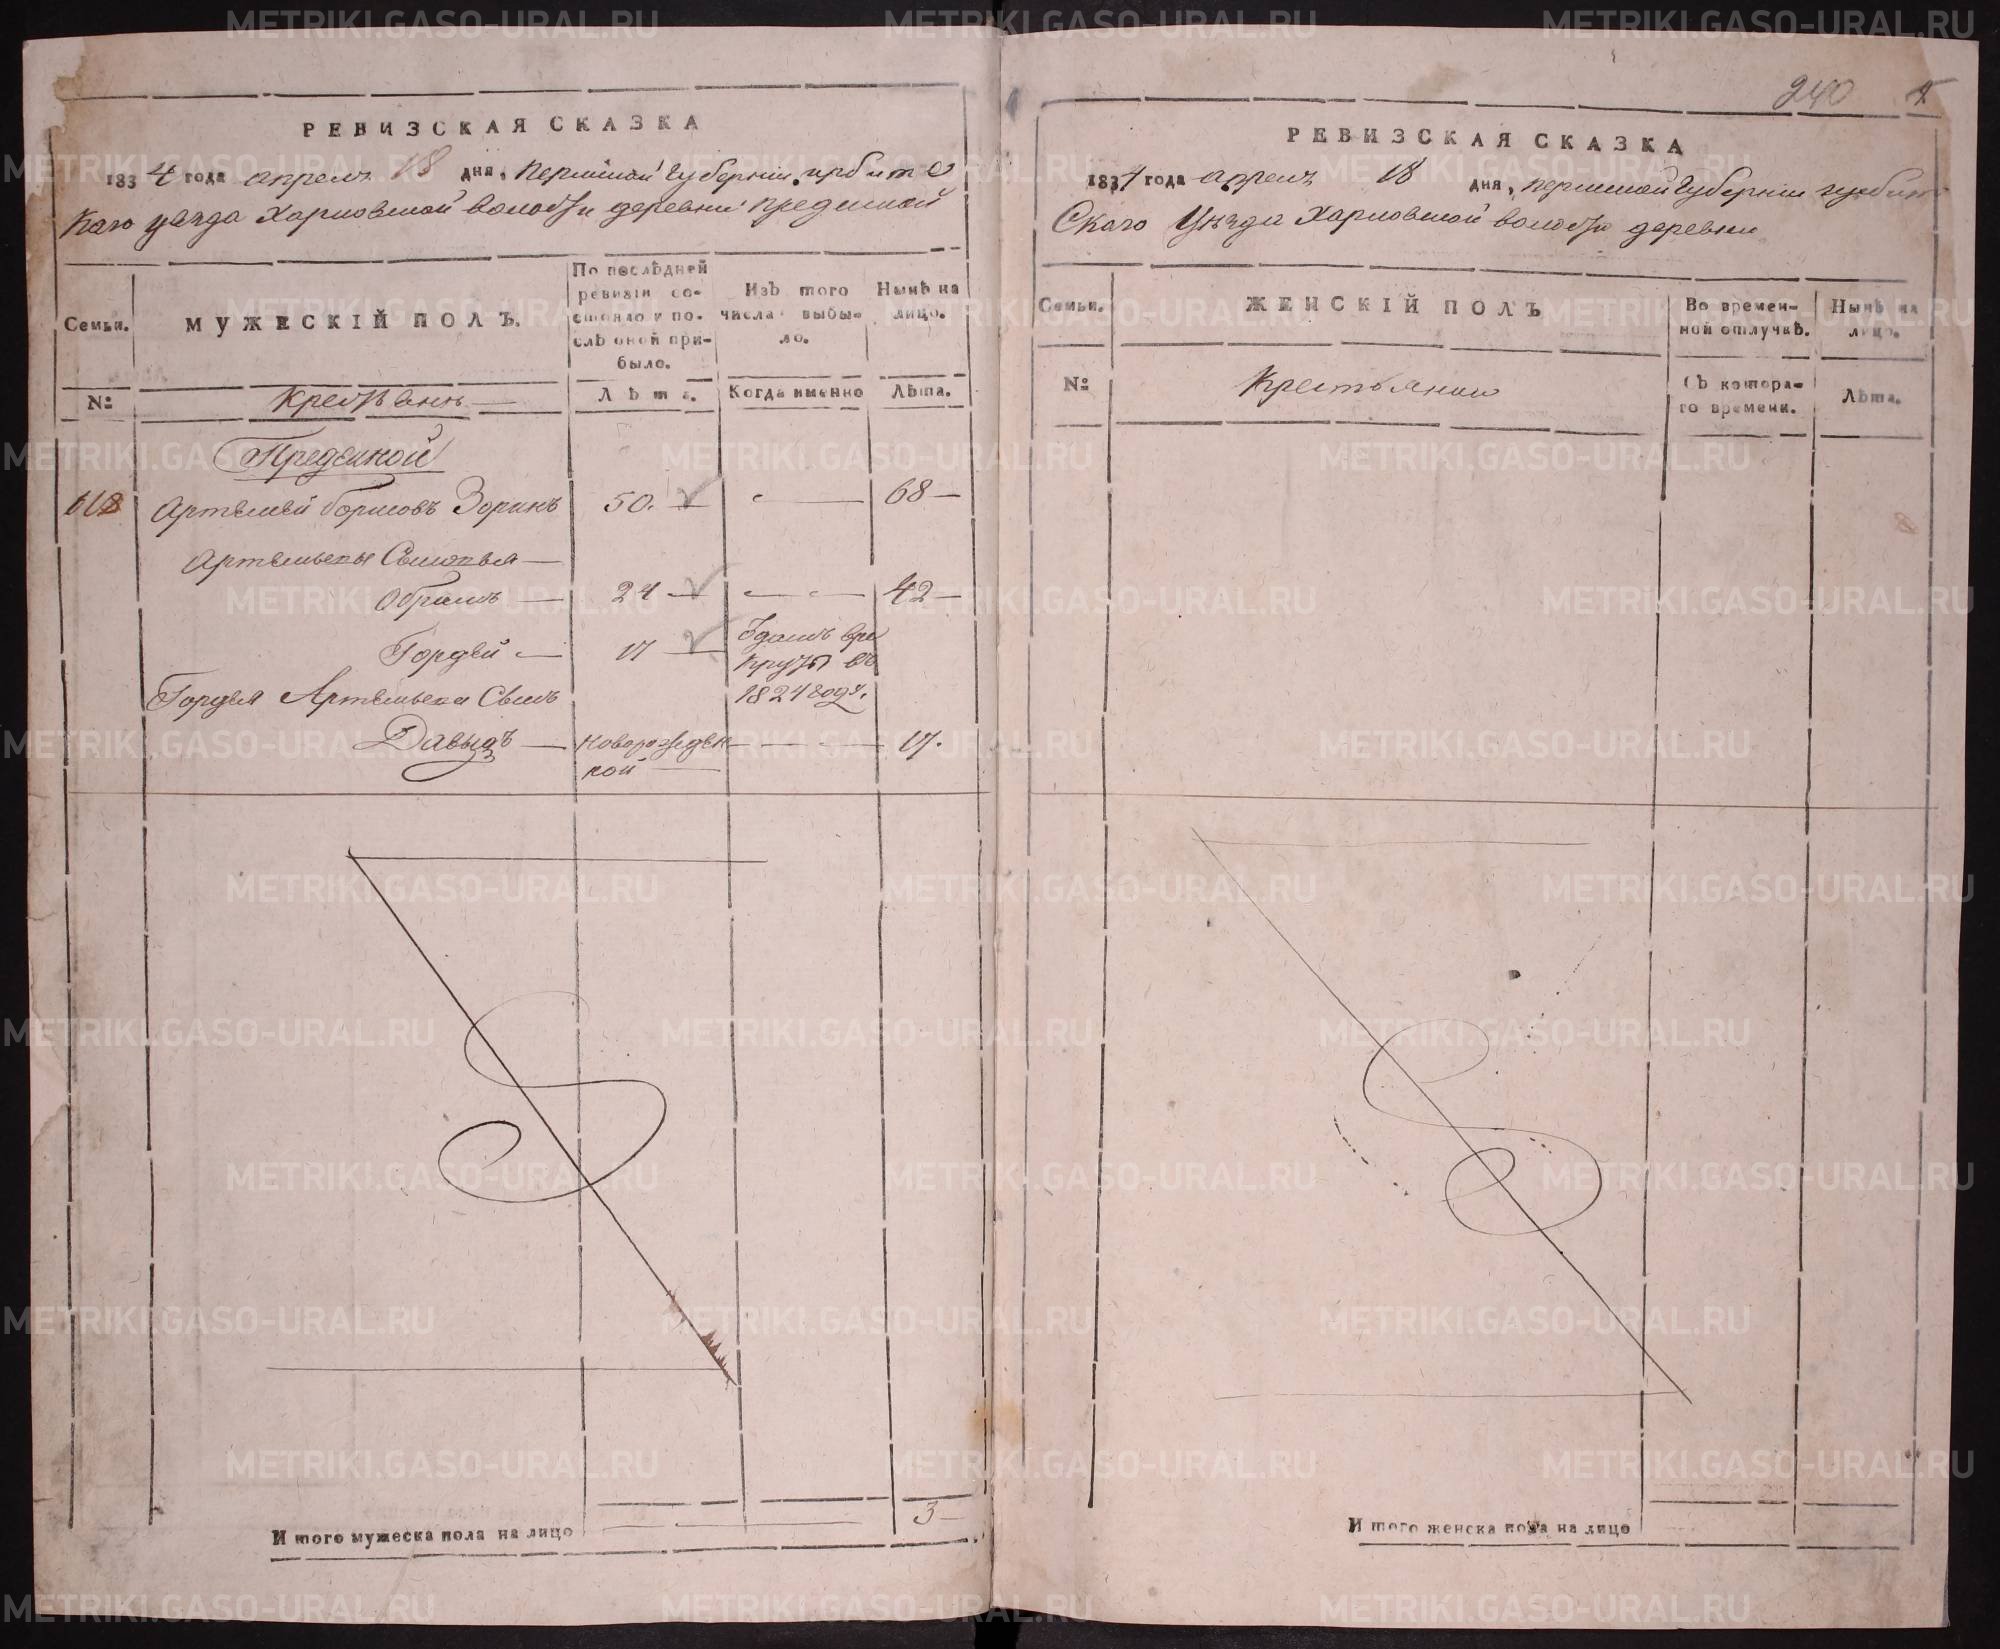 240
РЕВИЗСКАЯ СКАЗКА
1834 года апреля 18 дня, пермской Губернiи ирбитс
каго уезда Харловской волости деревни предеиной
Семьи.
МУЖЕСКIЙ ПОЛЪ.
По послѣдней ревизiи состояло и послѣ оной прибыло.
Изъ того числа выбыло.
Нынѣ на лицо.
№
Крестьянъ
Лѣта.
Когда именно
Лѣта.
Предеиной
Артемей борисовъ Зоринъ 50. 68
Артемьевы Сыновья
Обрамъ 24 42
Гордей 17 Зданъ вре
круты въ
Гордея Артемьева Сынъ 1824 году.
Давыдъ новорожден 17.
ной
Итого мужеска пола на лицо 3
РЕВИЗСКАЯ СКАЗКА
1834 года апреля 18 дня, пермской Губернiи ирбит
Скаго Уезда Харловской волости деревни
Семьи.
ЖЕНСКIЙ ПОЛЪ
Во временной отлучкѣ.
Нынѣ на лицо.
№
Крестьянки
Съ котораго времени.
Лѣта.
Итого женска пола на лицо
METRIKI.GASO-URAL.RU